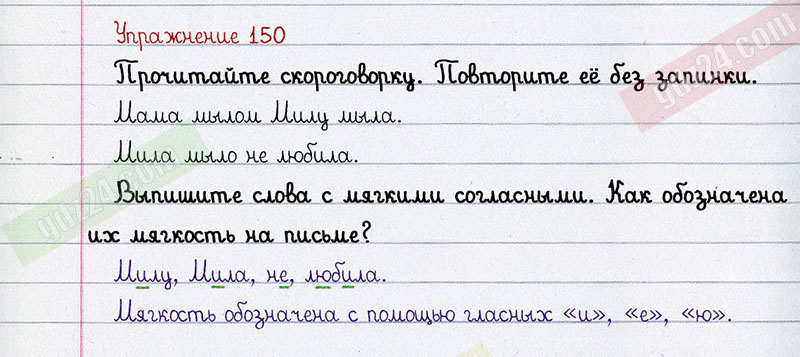 Упражнение 150
Прочитайте скороговорку. Повторите её без запинки.
Мама мылом Милу мыла.
Мила мыло не любила.
Выпишите слова с мягкими согласными. Как обозначена
их мягкость на письме?
Милу, Мила, не, любила.
Мягкость обозначена с помощью гласных «и», «е», «ю».
gdz24.com
gdz24.com